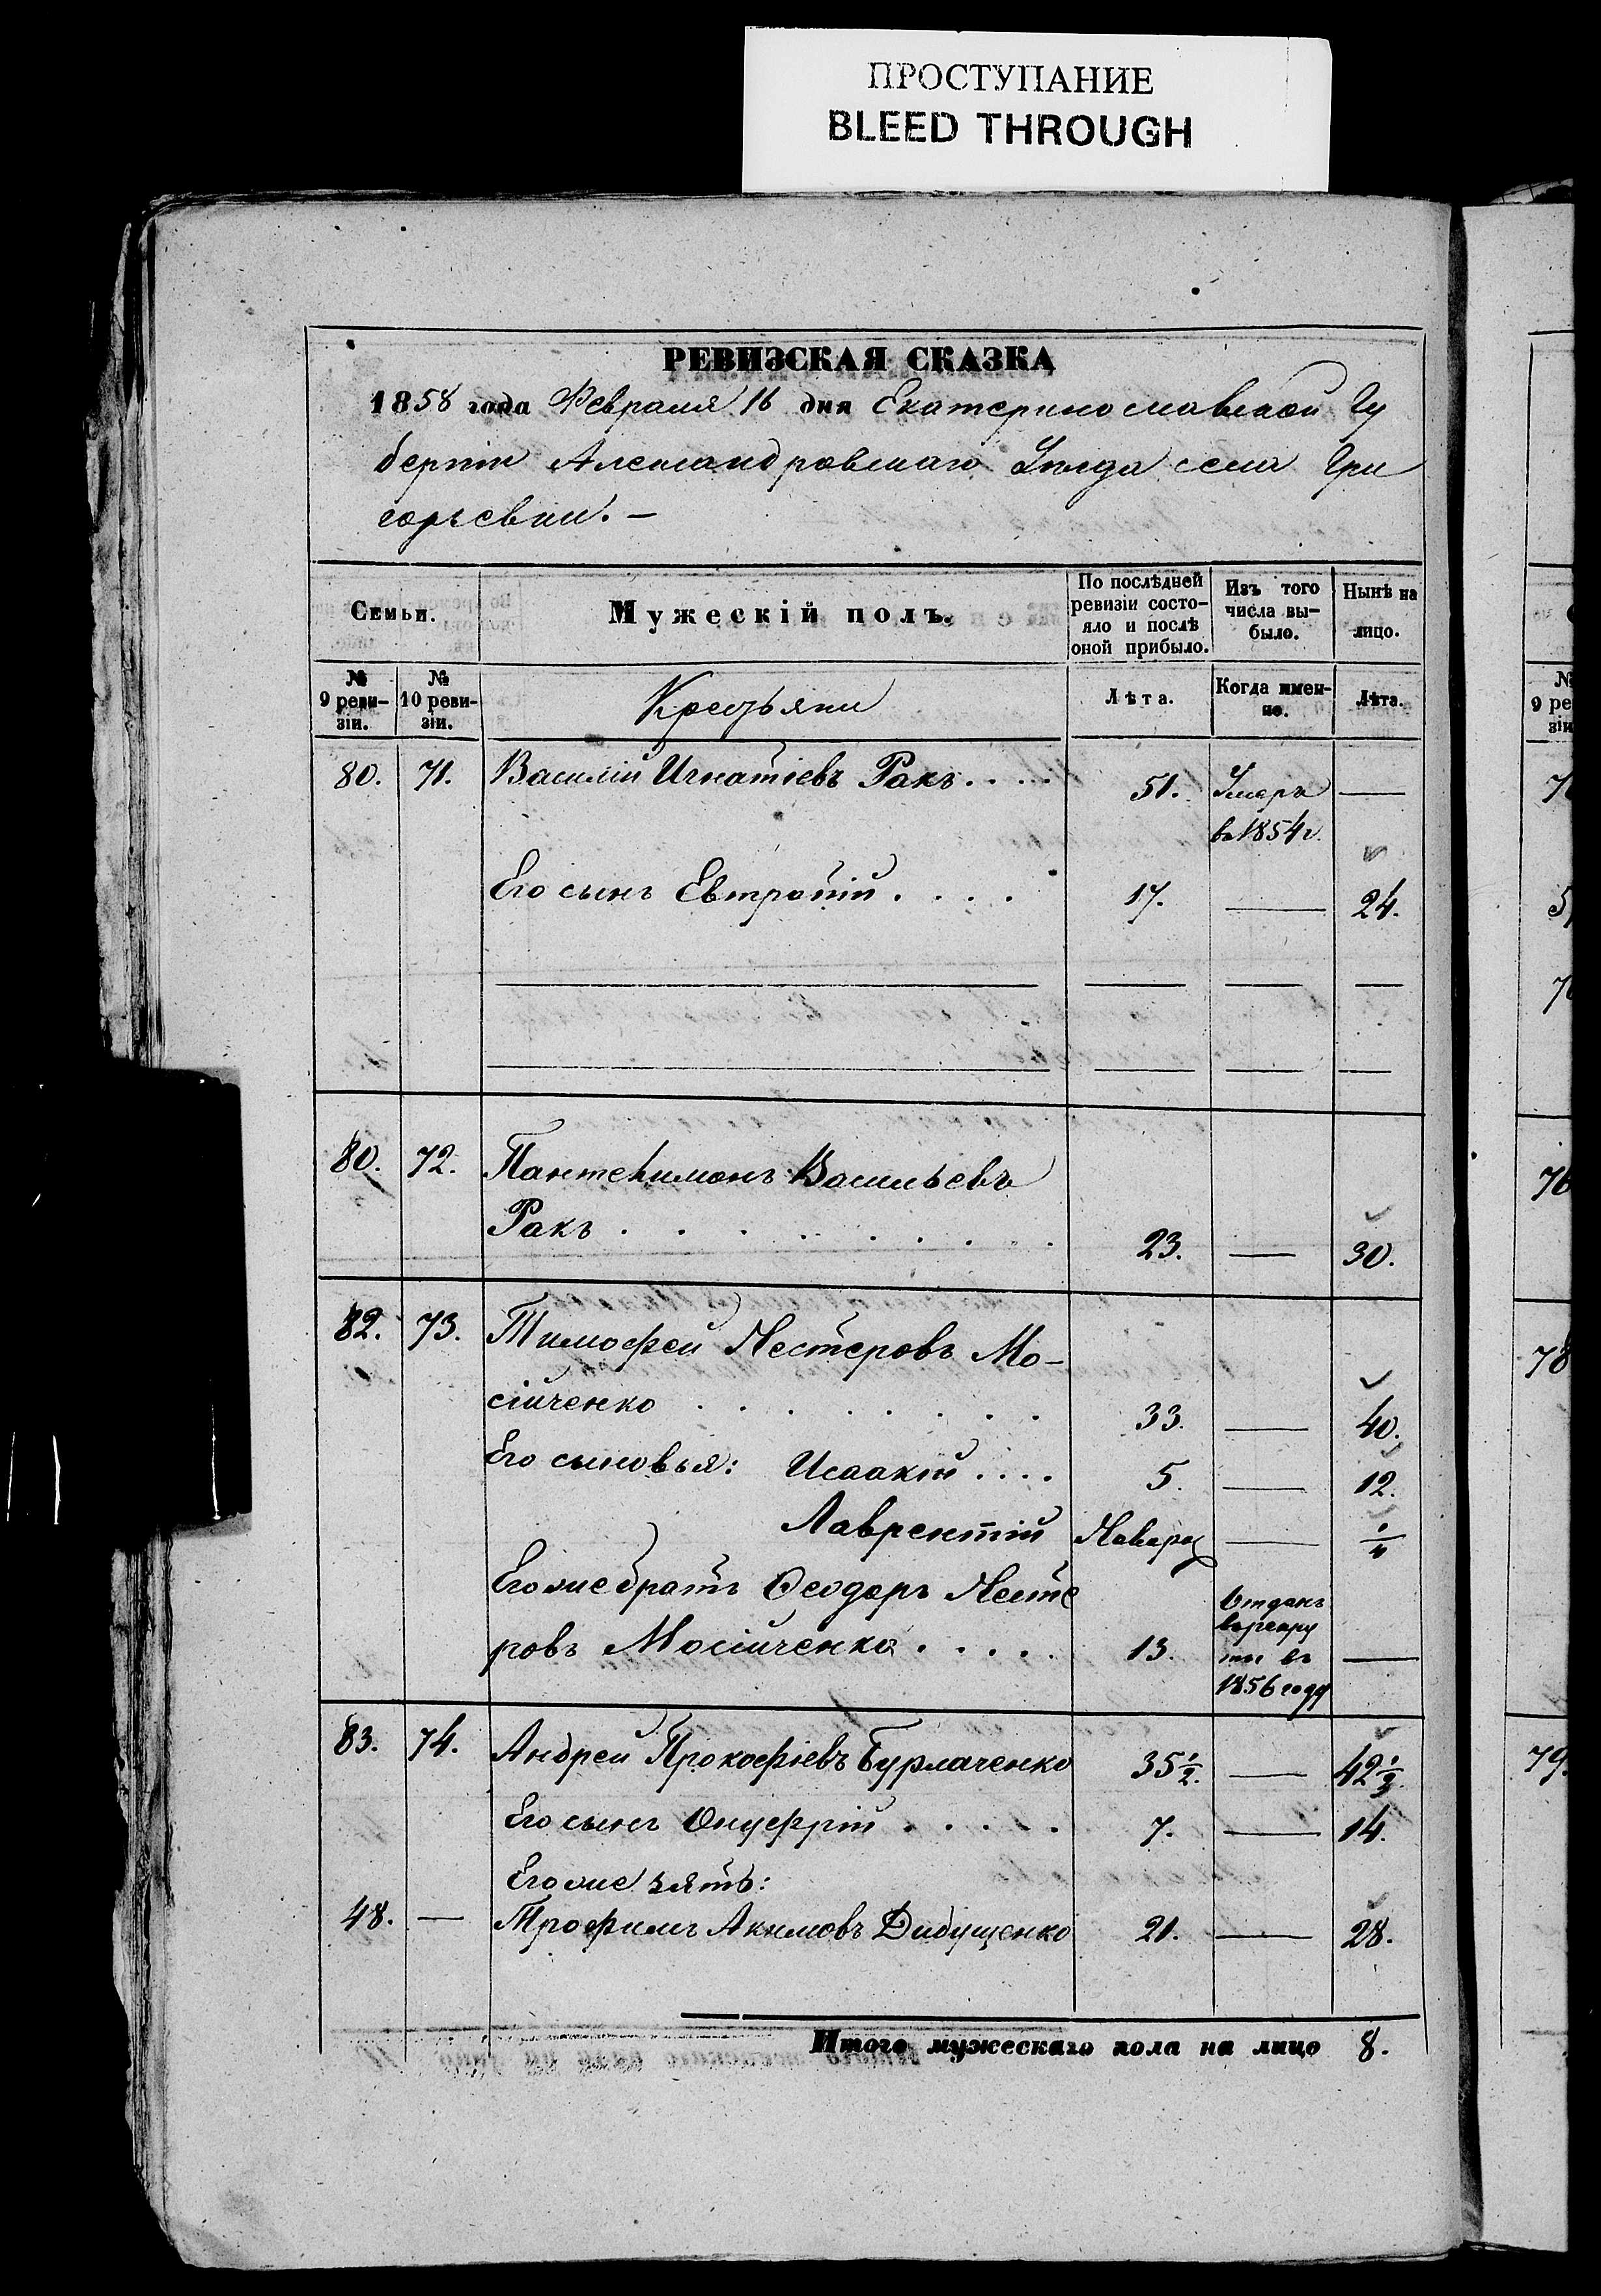 ПРОСТУПАНИЕ
BLEED THROUGH
РЕВИЗСКАЯ СКАЗКА
1858 года Февраля 16 дня Екатеринославской Гу
берніи Александровскаго Уѣзда села Гри
горьевки. —
Семьи.
Мужескій полъ.
По послѣдней ревизіи состо-
яло и послѣ оной прибыло.
Изъ того числа вы-
было.
Нынѣ на лицо.
№ 9 реви-
зіи.
№ 10 реви-
зіи.
Крестьяни
Лѣта.
Когда имен-
но.
Лѣта.
80. 71. Василій Игнатіевъ Ракъ.... 51. Умеръ —
въ 1854 г.
Его сынъ Евтропій.... 17. — 24.
80. 72. Пантелимонъ Васильевъ
Ракъ........ 23. — 30.
82. 73. Тимофей Нестеровъ Мо-
сійченко....... 33. — 40.
Его сыновья: Исаакій.... 5. — 12.
Лаврентій Новорож —
Его же братъ Ѳеодоръ Несте
ровъ Мосійченко.... 13. Отданъ
въ рекру
ты въ —
1856 году
83. 74. Андрей Прокофіевъ Бурлаченко 35 1/2. — 42 1/2.
Его сынъ Онуфрій..... 7. — 14.
Его же зять:
48. — Трофимъ Акимовъ Дибущенко 21. — 28.
Итого мужескаго пола на лицо 8.
№
9 ре
зіи
76
78
79.